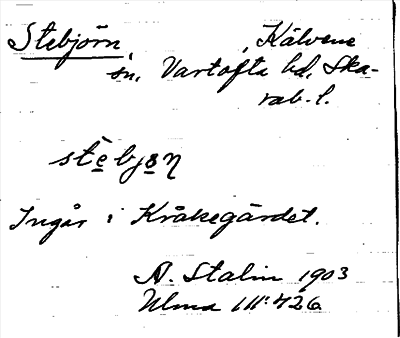 Stebjörn, , Kälvene
sn, Vartofta hd, Ska-
rab. l.
stèbjøn
Ingår i Kråkegärdet.
A. Stalin 1903
Ulma 111:426